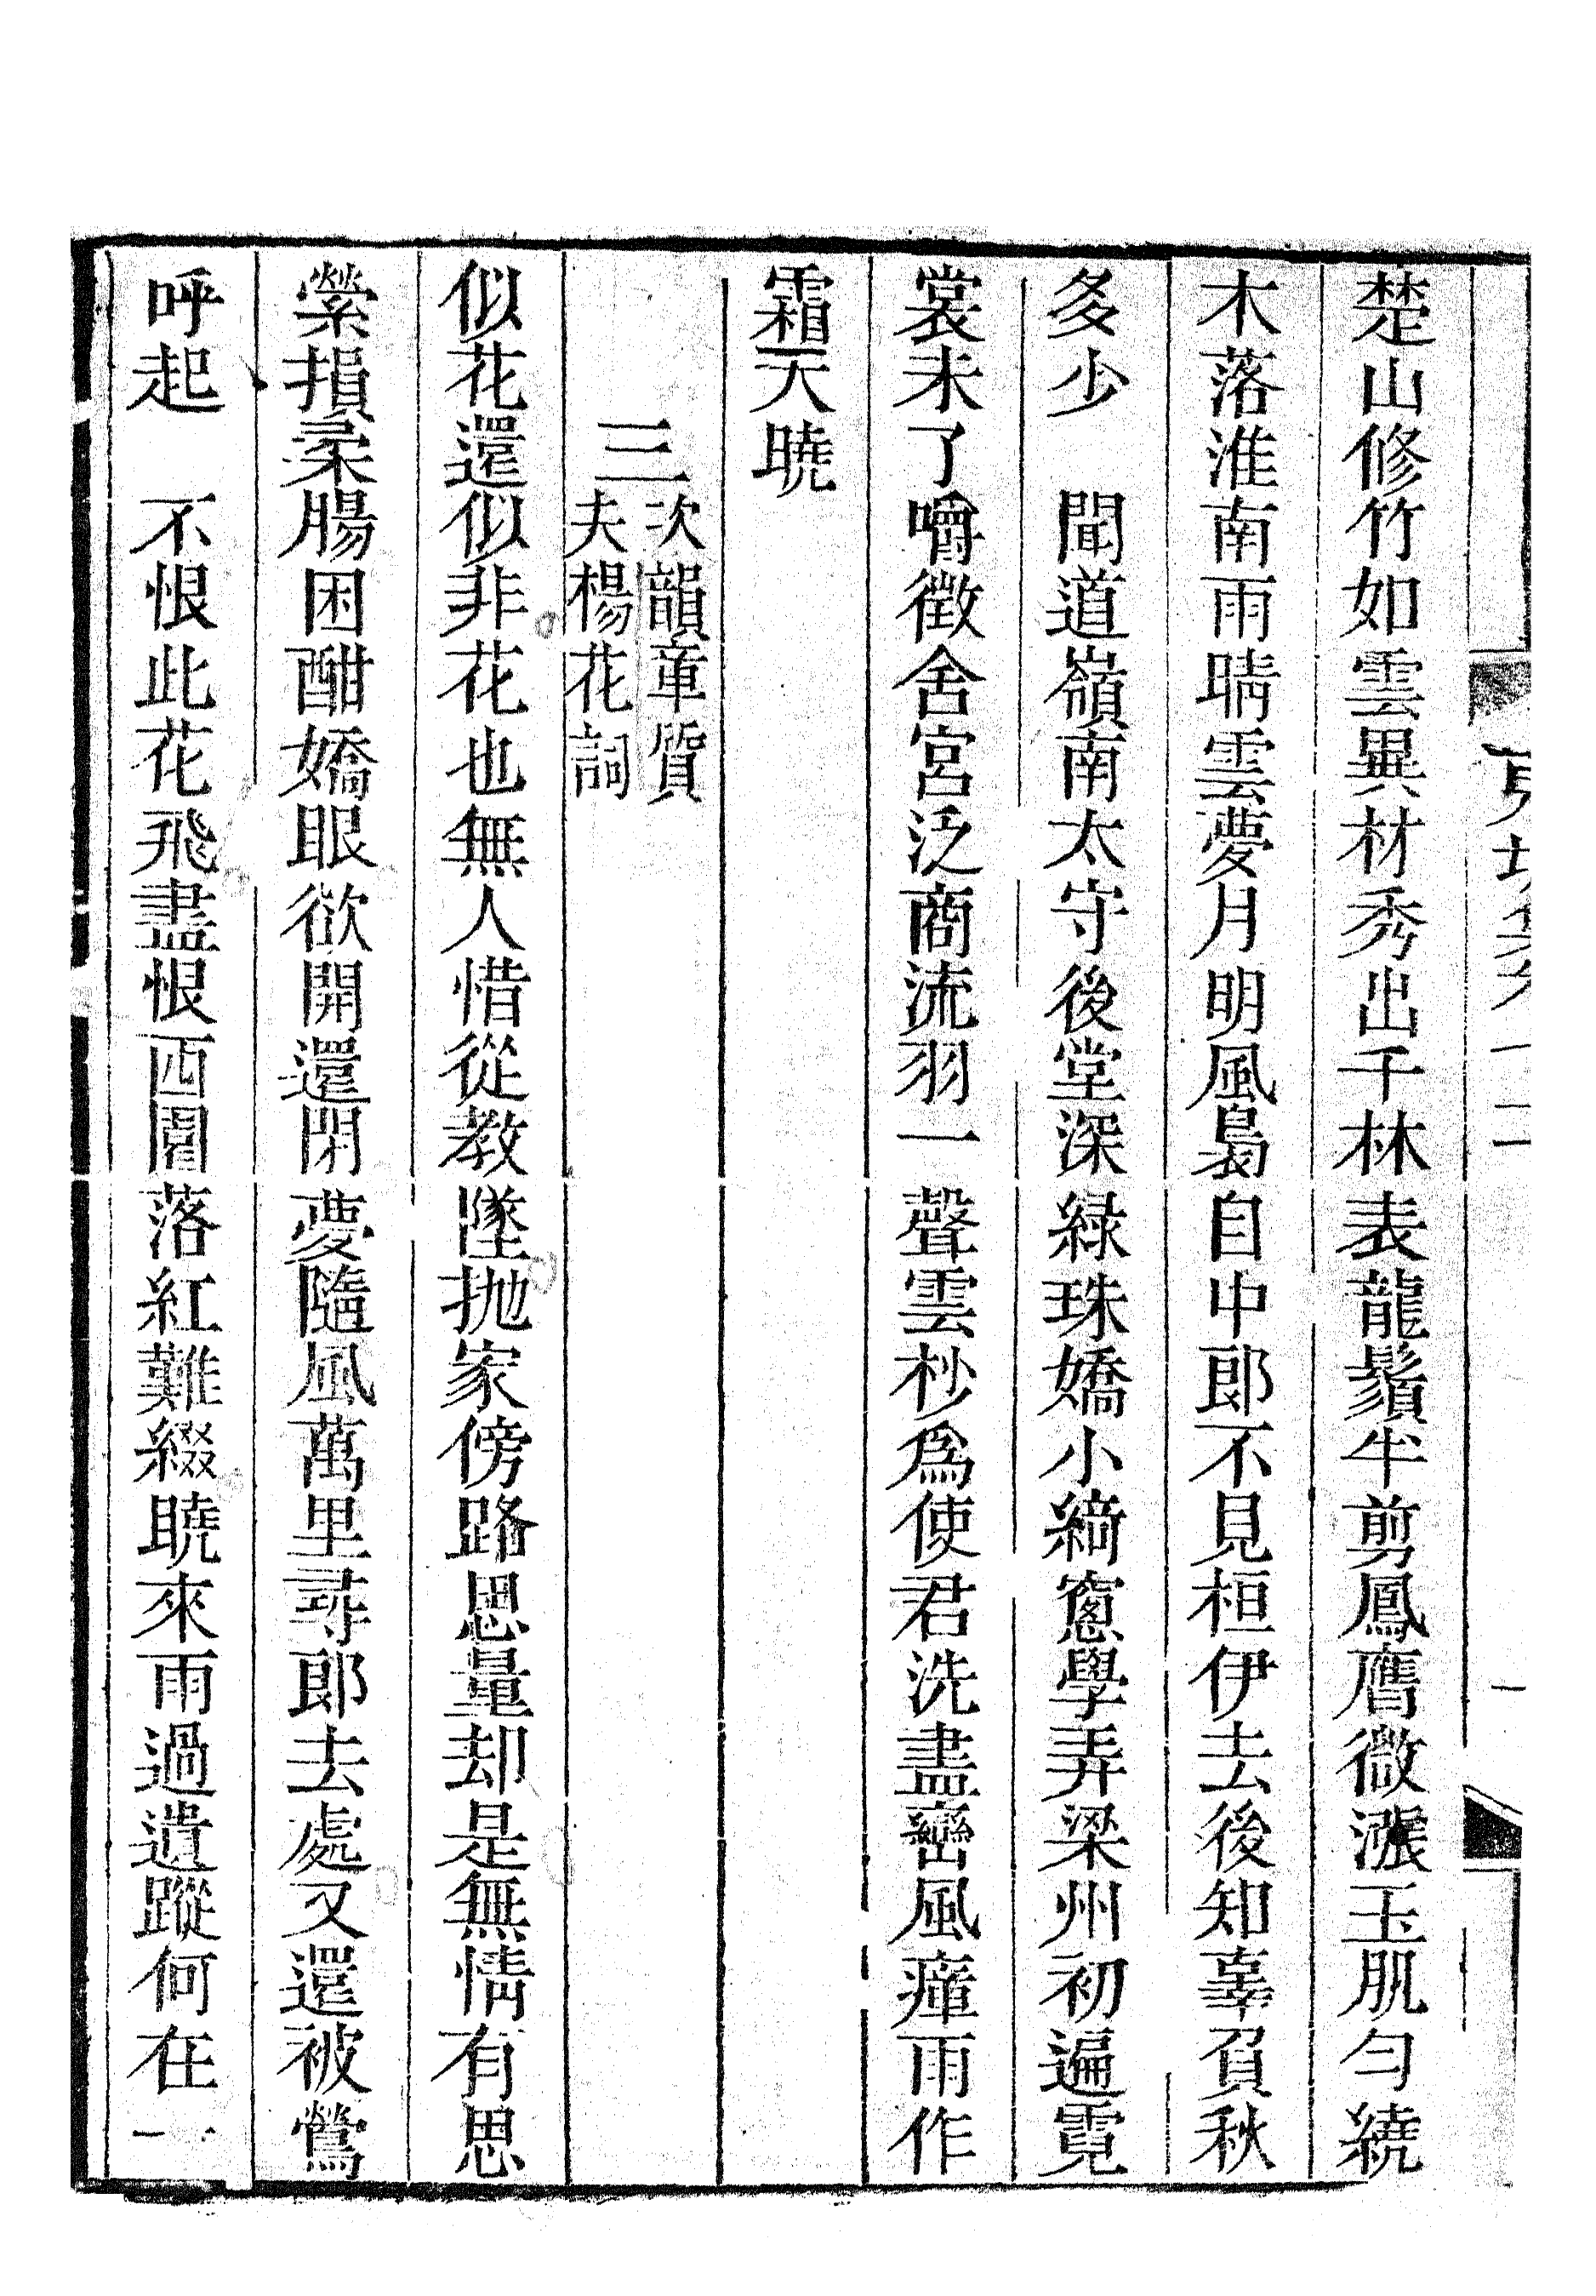 楚山修竹如雲異材秀出千林表龍鬚半剪鳳膺微漲玉肌勻繞
木落淮南雨晴雲夢月明風裊自中郎不見桓伊去後知辜負秋
多少　聞道嶺南太守後堂深綠珠嬌小綺窻學弄梁州初遍霓
裳未了嚼徵含宮泛商流羽一聲雲杪爲使君洗盡蠻風瘴雨作
霜天曉
三次韻章質夫楊花詞
似花還似非花也無人惜從教墜抛家傍路思量却是無情有思
縈損柔腸困酣嬌眼欲開還閉夢隨風萬里尋郎去處又還被鶯
呼起　不恨此花飛盡恨西園落紅難綴曉來雨過遺蹤何在一